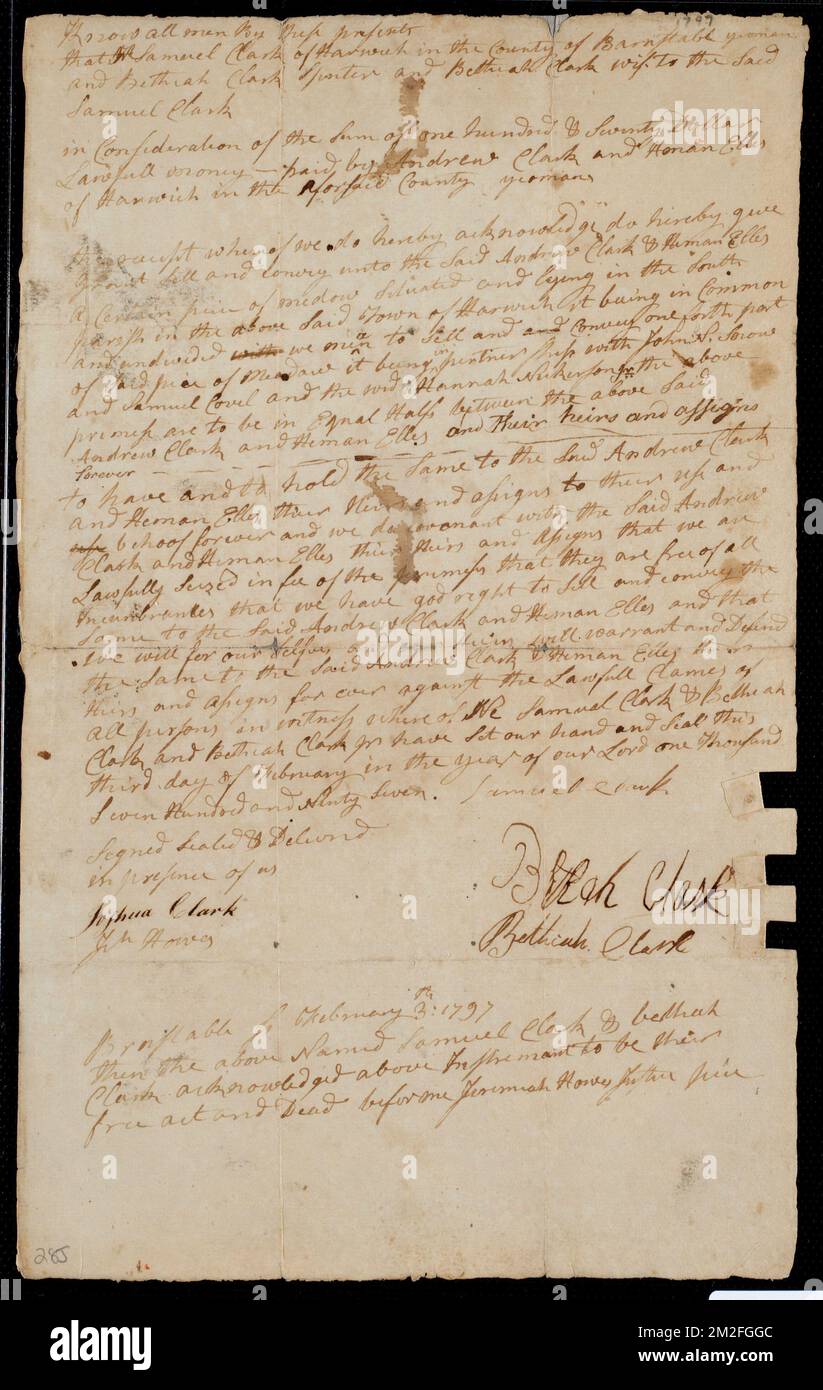 1797
Know all men By these presents
that We Samuel Clark of Harwich in the County of Barnstable yeoman
and Bethiah Clark Spinter and Bethiah Clark wife to the Said
Samuel Clark
in Consideration of the Sum of one hundred & Seventy Dollars
Lawfull money paid by Andrew Clark and Heman Elles
of Harwich in the Aforsaid County yeomans
the receipt where of we do hereby acknowledge do hereby give
grant Sell and Convey unto the Said Andrew Clark & Heman Elles
a Certain piece of medow Situated and lying in the South
parish in the above Said town of Harwich it being in Common
and undivided with we mean to Sell and and Convey one forth part
of Said piece of Meadaw it being in partner Ship with John S. Snow
and Samuel Covel and the wid Hannah Nickerson Jr the above
premises are to be in Equal Halfs between the above Said
Andrew Clark and Heman Elles and their heirs and assigns
forever
to have and to hold the Same to the Said Andrew Clark
and Heman Elles their Heirs and assigns to their use and
behoof forever and we do covenant with the Said Andrew
Clark and Heman Elles their Heirs and assigns that we are
Lawfully Seized in fee of the premises that they are free of all
Incumbrances that we have god right to Sell and convey the
Same to the Said Andrew Clark and Heman Elles and that
we will for our Selves and our heirs will warrant and Defend
the Same to the Said Andrew Clark & Heman Elles their
heirs and assigns for ever against the Lawfull Clames of
all persons in witness where of We Samuel Clark & Bethiah
Clark and Bethiah Clark Jr have Set our hand and Seal this
third day of February in the year of our Lord one Thousand
Seven Hundred and Ninty Seven. Samuel Clark
Segned Sealed & Deliverd
in presence of us
Bethiah Clark
Joshua Clark
Jh Howes
Bethiah Clark
Brnstable Ss February 3th: 1797
then the above Named Samuel Clark & bethiah
Clark acknowledged above Instremant to be their
free act and Dead before me Jeremiah Howes Justice peice
285
alamy
Image ID: 2M2FGGC
www.alamy.com